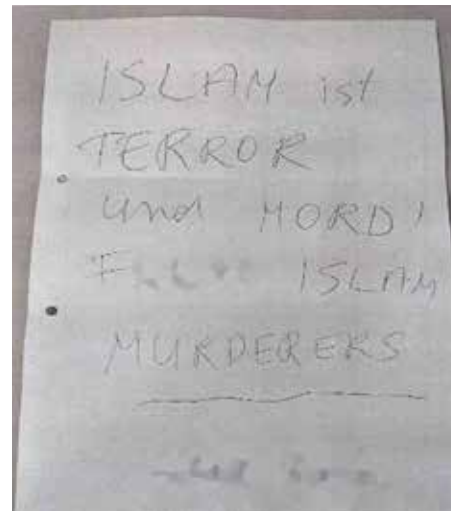 ISLAM ist
TERROR
und MORD!
ISLAM
MURDERERS